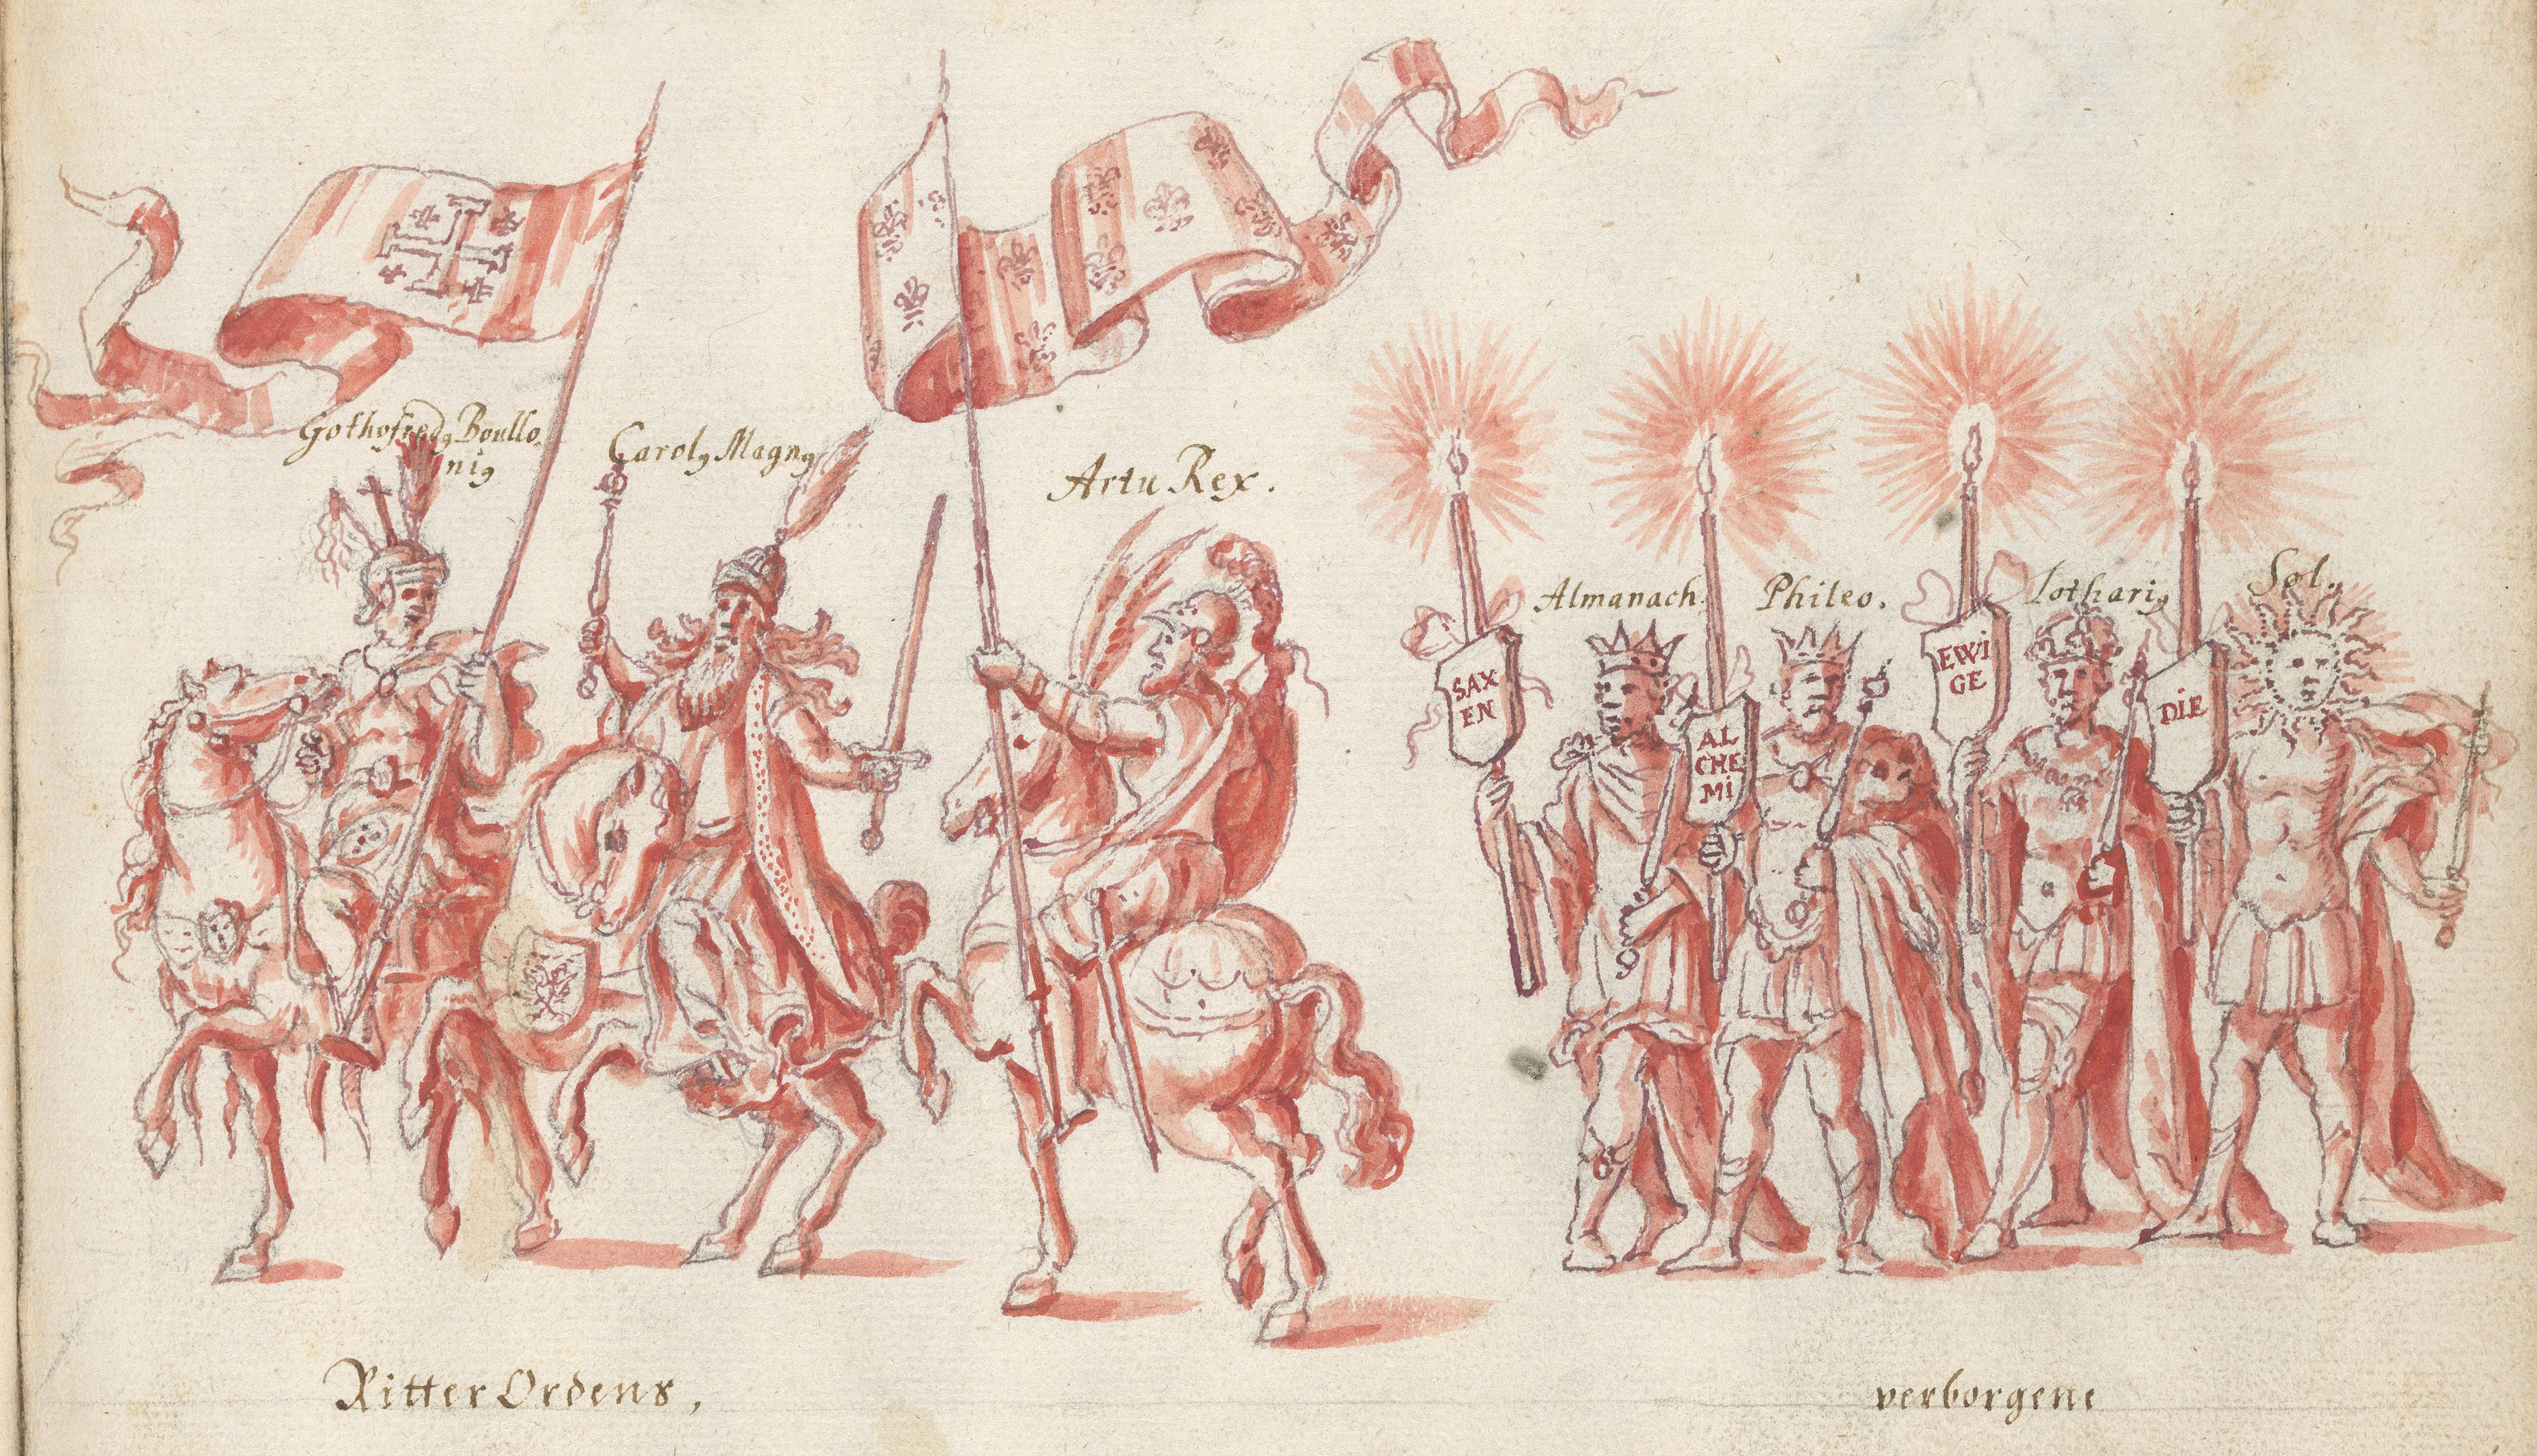 Gothofredꝯ Boullo
niꝯ
Carolꝯ Magnꝯ
Artu Rex.
Almanach.
Phileo.
Lothariꝯ
Sol.
SAX
EN
AL
CHE
Mi
EWi
GE
DiE
Ritter Ordens,
verborgene